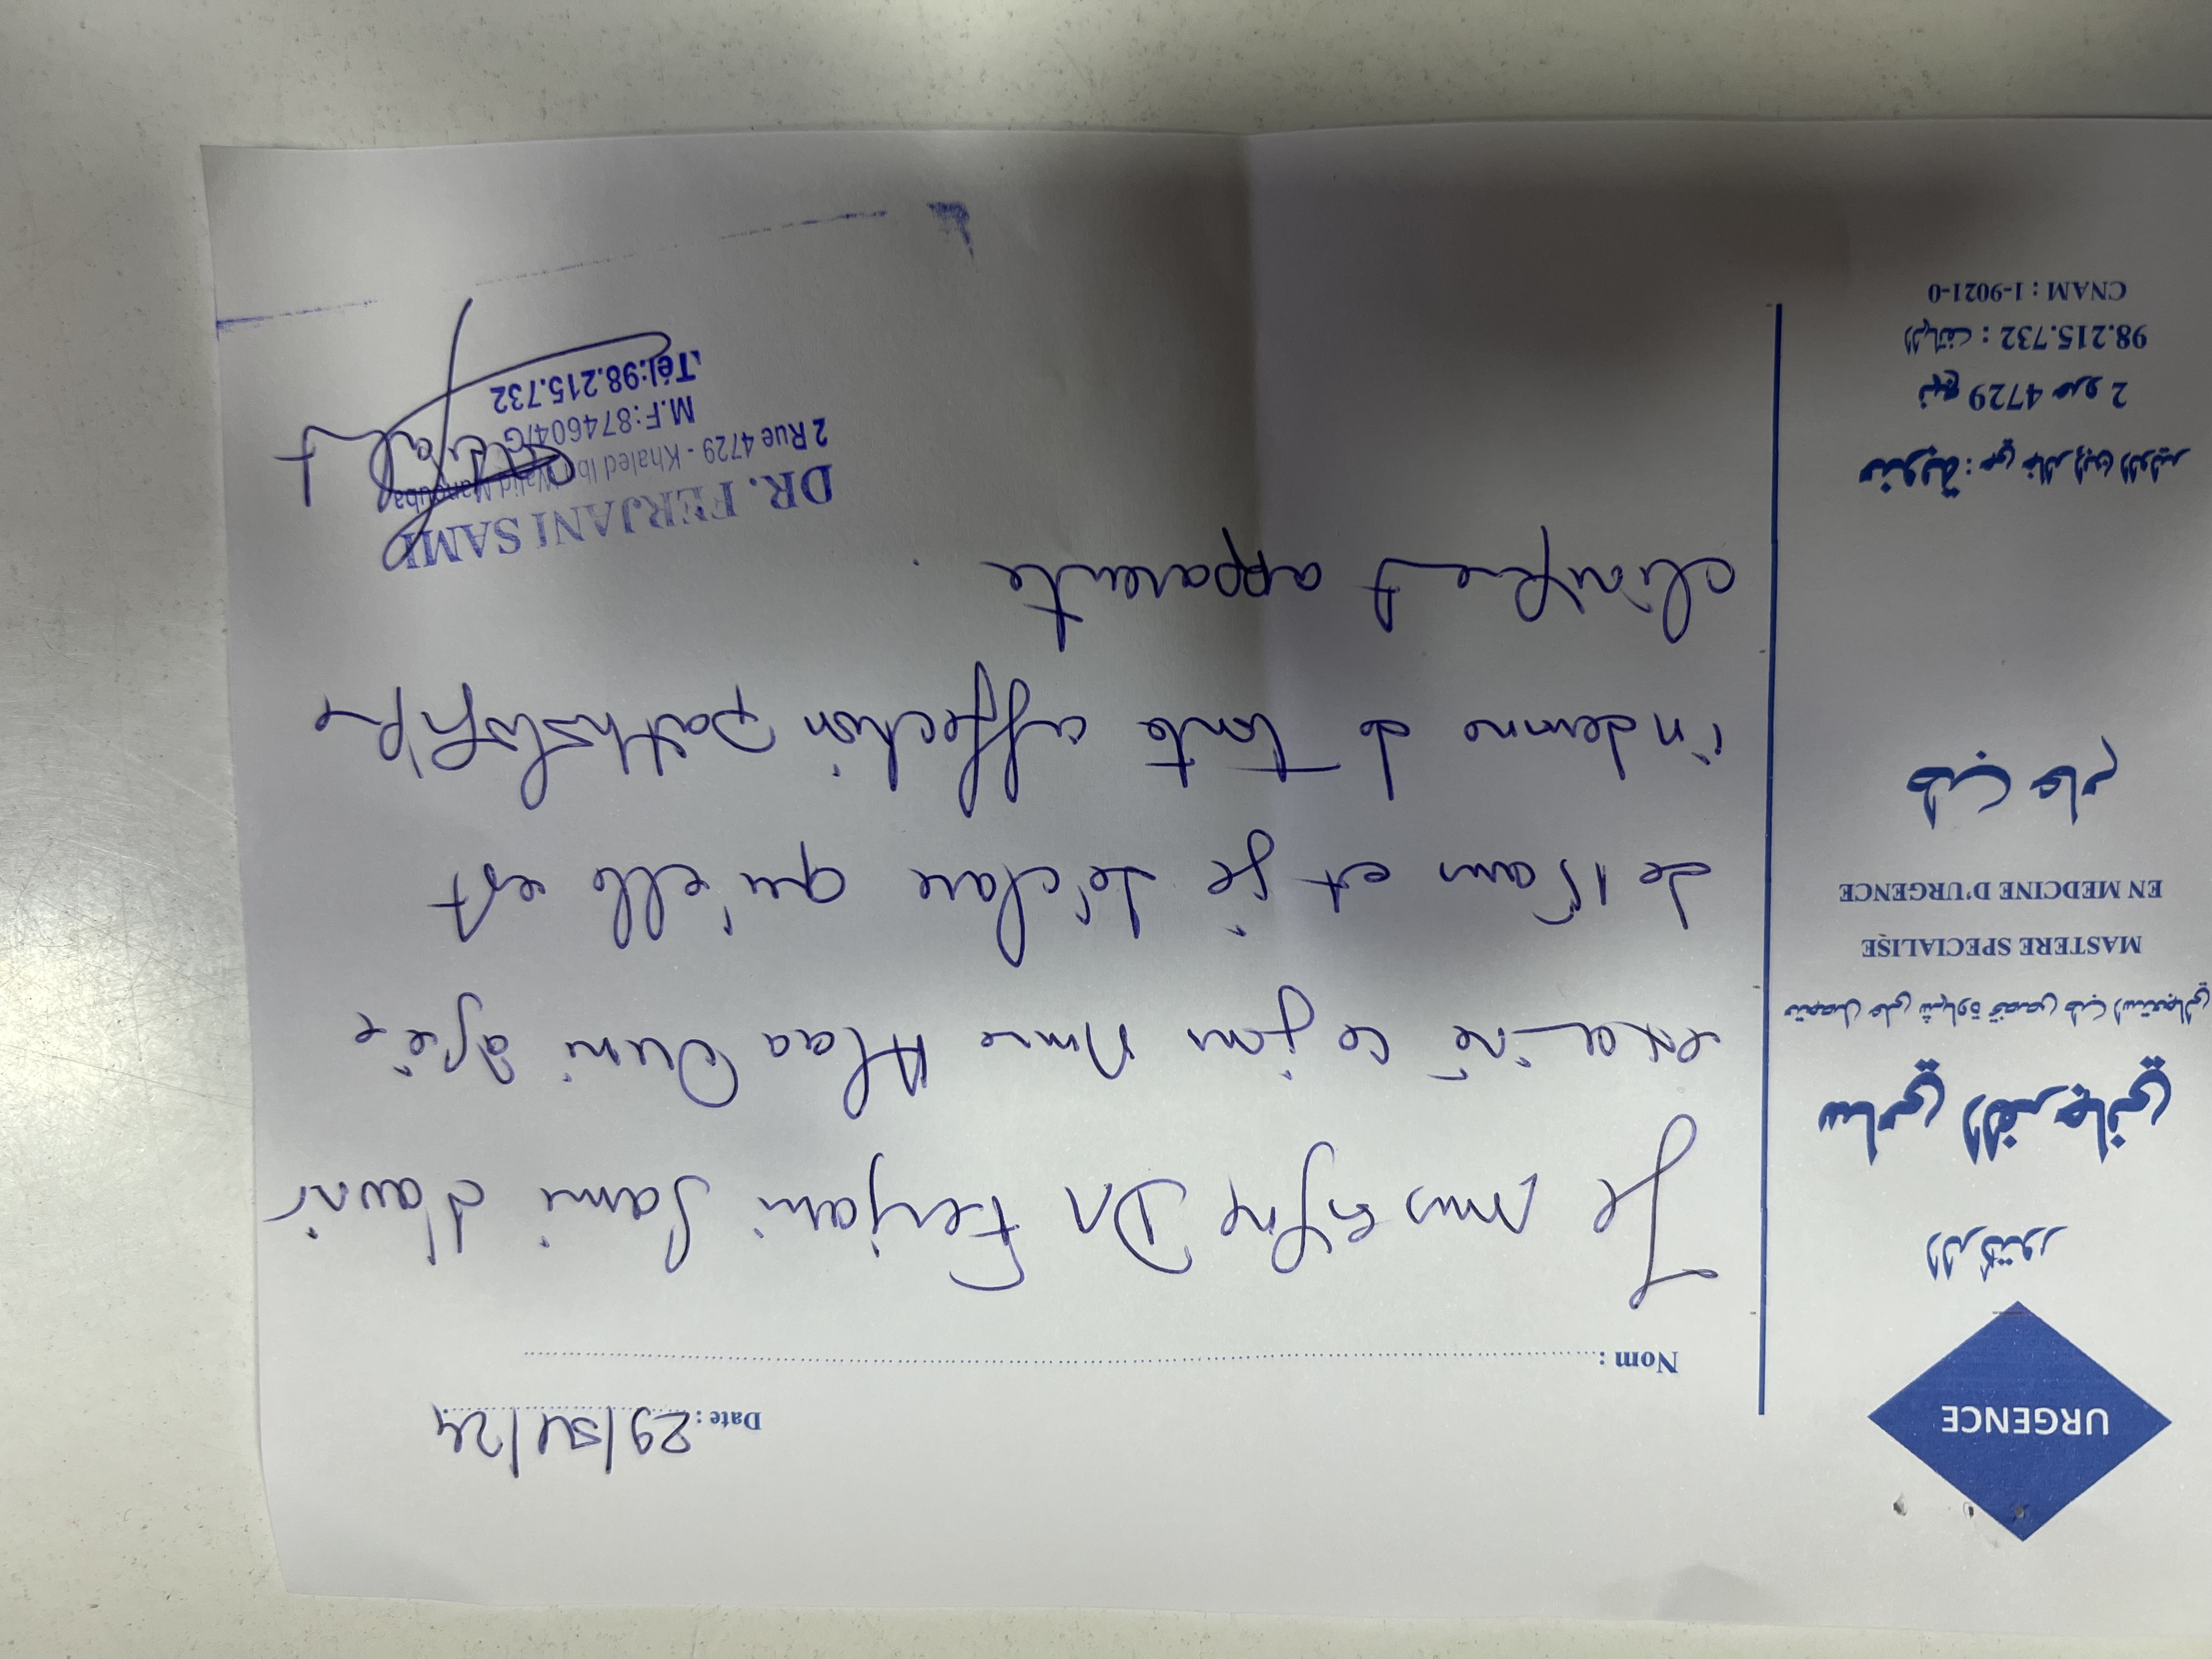 URGENCE
الدكتور
سامي الفرجاني
متحصل على شهادة تخصص طب استعجالي
MASTERE SPECIALISE
EN MEDCINE D'URGENCE
طب عام
منوبة : حي خالد إبن الوليد
2 نهج 4729 عدد
الهاتف : 98.215.732
CNAM : 1-9021-0
Date : 29/    /24
Nom :
Je           Dr Ferjani Sami d'avoir
examiné ce jour Mme Alaa Ouni agée
de      ans et je déclare qu'elle est
indemne de toute affection pathologique
         apparente.
DR. FERJANI SAMI
2 Rue 4729 - Khaled Ibn Walid Manouba
M.F:874604/G
Tél:98.215.732